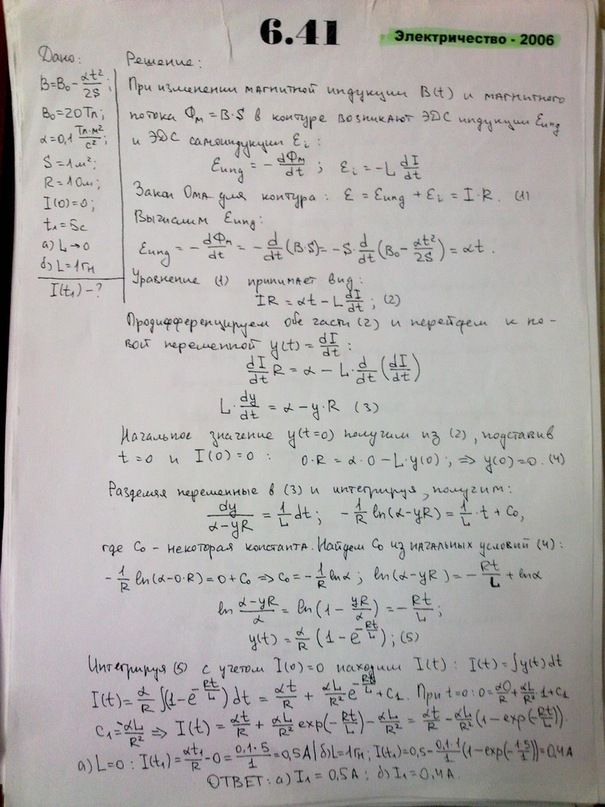 6.41
Электричество - 2006
Дано:
B=B₀-αt²/2S;
B₀=20Тл;
α=0,1 Тл·м²/с²;
S=1м²;
R=1Ом;
I(0)=0;
t₁=5с
а) L→0
б) L=1Гн
I(t₁)-?
Решение:
При изменении магнитной индукции B(t) и магнитного
потока Φм=B·S в контуре возникают ЭДС индукции Eинд
и ЭДС самоиндукции Ei:
Eинд=-dΦм/dt; Ei=-L dI/dt
Закон Ома для контура: E=Eинд+Ei=I·R. (1)
Вычислим Eинд:
Eинд=-dΦм/dt=-d/dt(B·S)=-S·d/dt(B₀-αt²/2S)=αt.
Уравнение (1) принимает вид:
IR=αt-L dI/dt; (2)
Продифференцируем обе части (2) и перейдем к но-
вой переменной y(t)=dI/dt:
dI/dt R=α-L·d/dt(dI/dt)
L·dy/dt=α-y·R (3)
Начальное значение y(t=0) получим из (2), подставив
t=0 и I(0)=0: 0·R=α·0-L·y(0); ⇒ y(0)=0. (4)
Разделяя переменные в (3) и интегрируя, получим:
dy/α-yR=1/L dt; -1/R ln(α-yR)=1/L·t+C₀,
где C₀ - некоторая константа. Найдем C₀ из начальных условий (4):
-1/R ln(α-0·R)=0+C₀ ⇒ C₀=-1/R lnα; ln(α-yR)=-Rt/L+lnα
ln α-yR/α=ln(1-yR/α)=-Rt/L;
y(t)=α/R(1-e^-Rt/L); (5)
Интегрируя (5) с учетом I(0)=0 находим I(t): I(t)=∫y(t)dt
I(t)=α/R∫(1-e^-Rt/L)dt=αt/R+αL/R² e^-Rt/L+C₁. При t=0: 0=α0/R+αL/R²·1+C₁
C₁=-αL/R² ⇒ I(t)=αt/R+αL/R² exp(-Rt/L)-αL/R²=αt/R-αL/R²(1-exp(-Rt/L)).
а) L=0: I(t₁)=αt₁/R-0=0,1·5/1=0,5А | б) L=1Гн; I(t₁)=0,5-0,1·1/1(1-exp(-1·5/1))=0,4А
ОТВЕТ: а) I₁=0,5А; б) I₁=0,4А.